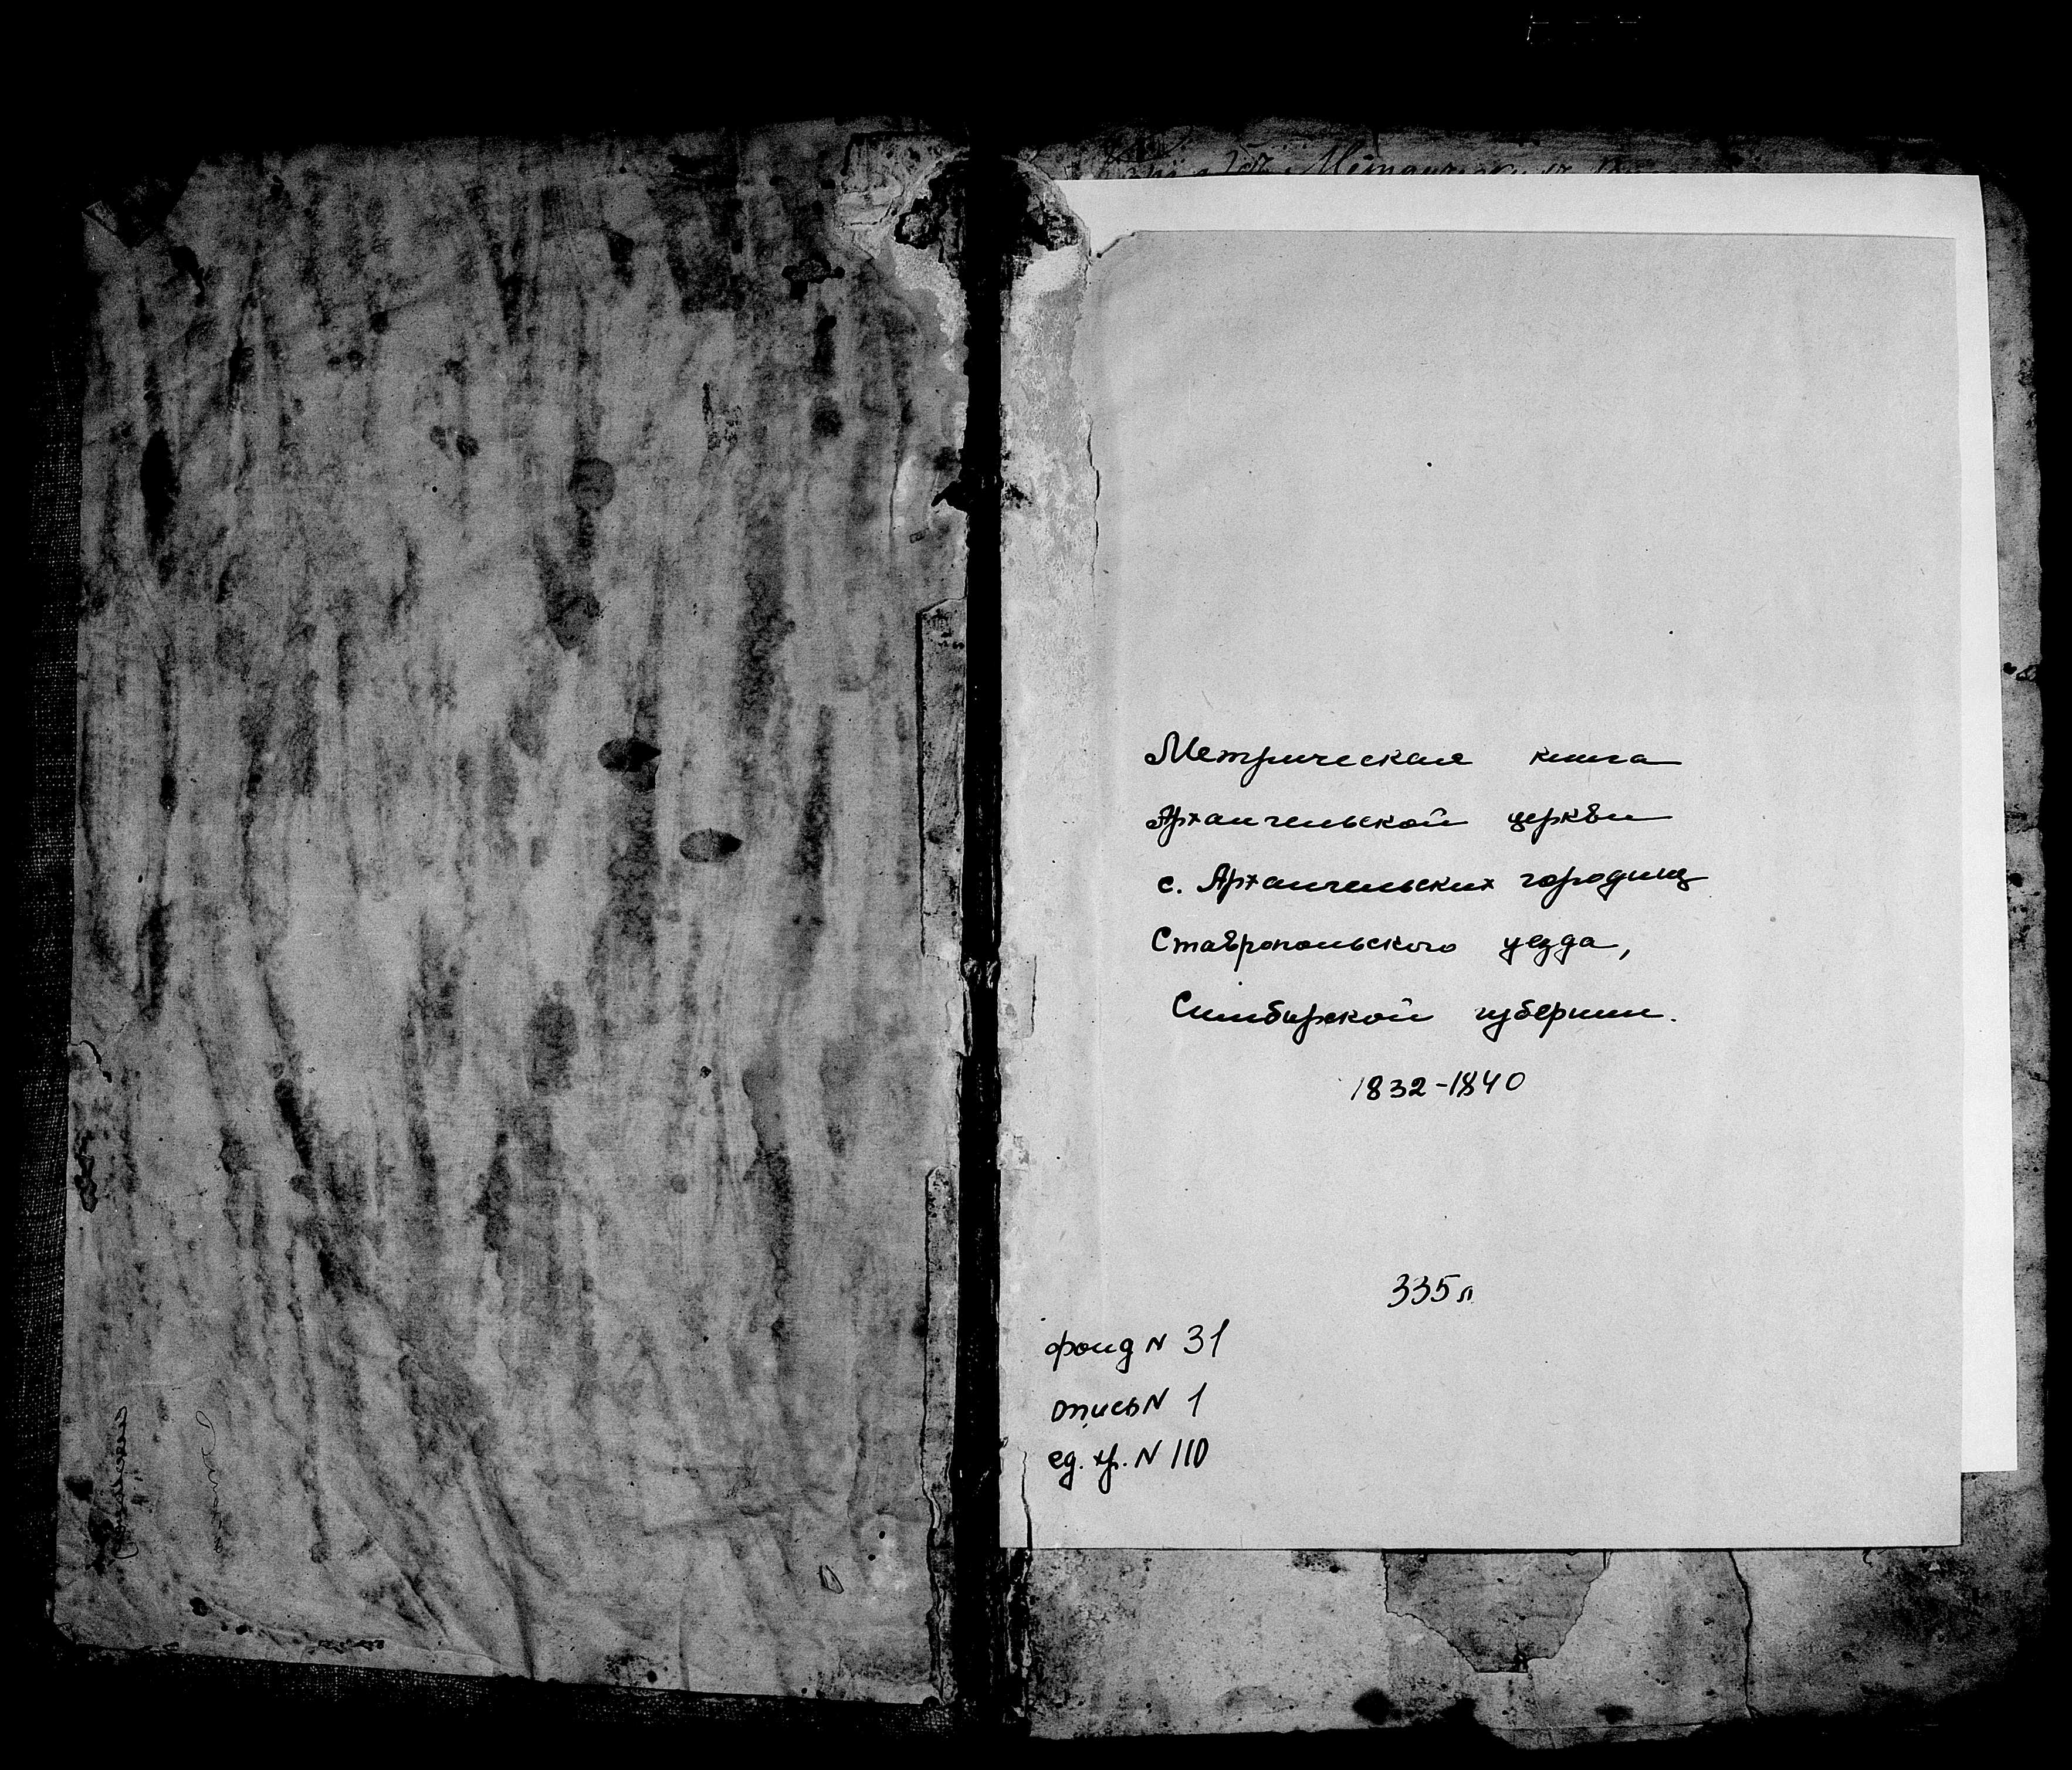 Метрическая книга
Архангельской церкви
с. Архангельских городищ
Ставропольского уезда,
Симбирской губернии.
1832-1840
335 л
фонд N 31
опись N 1
ед. хр. N 110